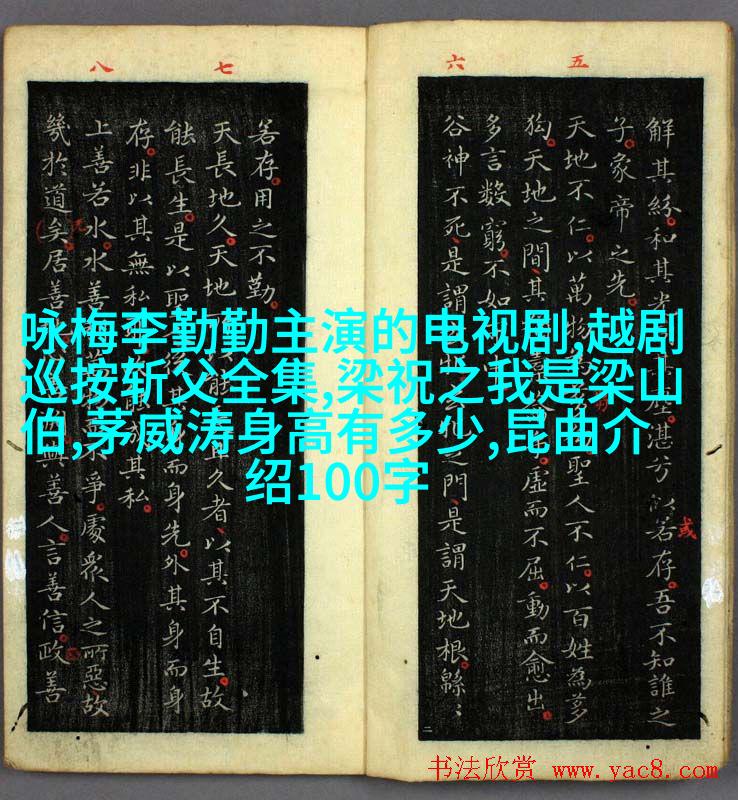 五
六
解其紛和其光塵湛兮似若存吾不知誰之
或
子象帝之先
天地不仁以萬物聖人不仁以百姓為芻
狗天地之間其虛而不屈動而愈出
多言數窮不如
谷神不死是謂之門是謂天地根緜〻
七
八
若存用之不勤
天長地久天地久者以其不自生故
能長生是以聖其身而身先外其身而身
存非以其無私能成其私
上善若水水善不爭處衆人之所惡故
幾於道矣居善與善人言善信政善
咏梅李勤勤主演的电视剧,越剧
巡按斩父全集,梁祝之我是梁山
伯,茅威涛身高有多少,昆曲介
绍100字
书法欣赏 www.yac8.com